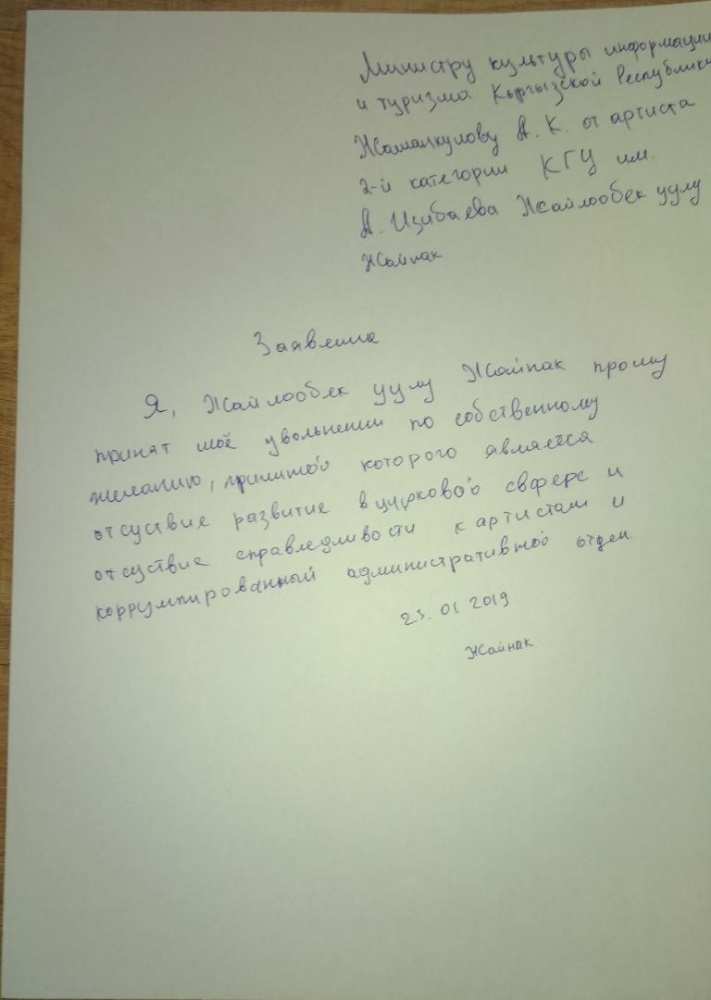 Министру культуры информации
и туризма Кыргызской Республики
Жаманкулову А. К. от артиста
2-й категории КГЦ им.
А. Изибаева Жайлообек уулу
Жайнак
Заявления
Я, Жайлообек уулу Жайнак прошу
принят моё увольнении по собственному
желанию, которого является
отсуствие развитие в цирковоо свфере и
отсуствие справледливости к артистам и
коррумпированный административноо отдел
23. 01 2019
Жайнак